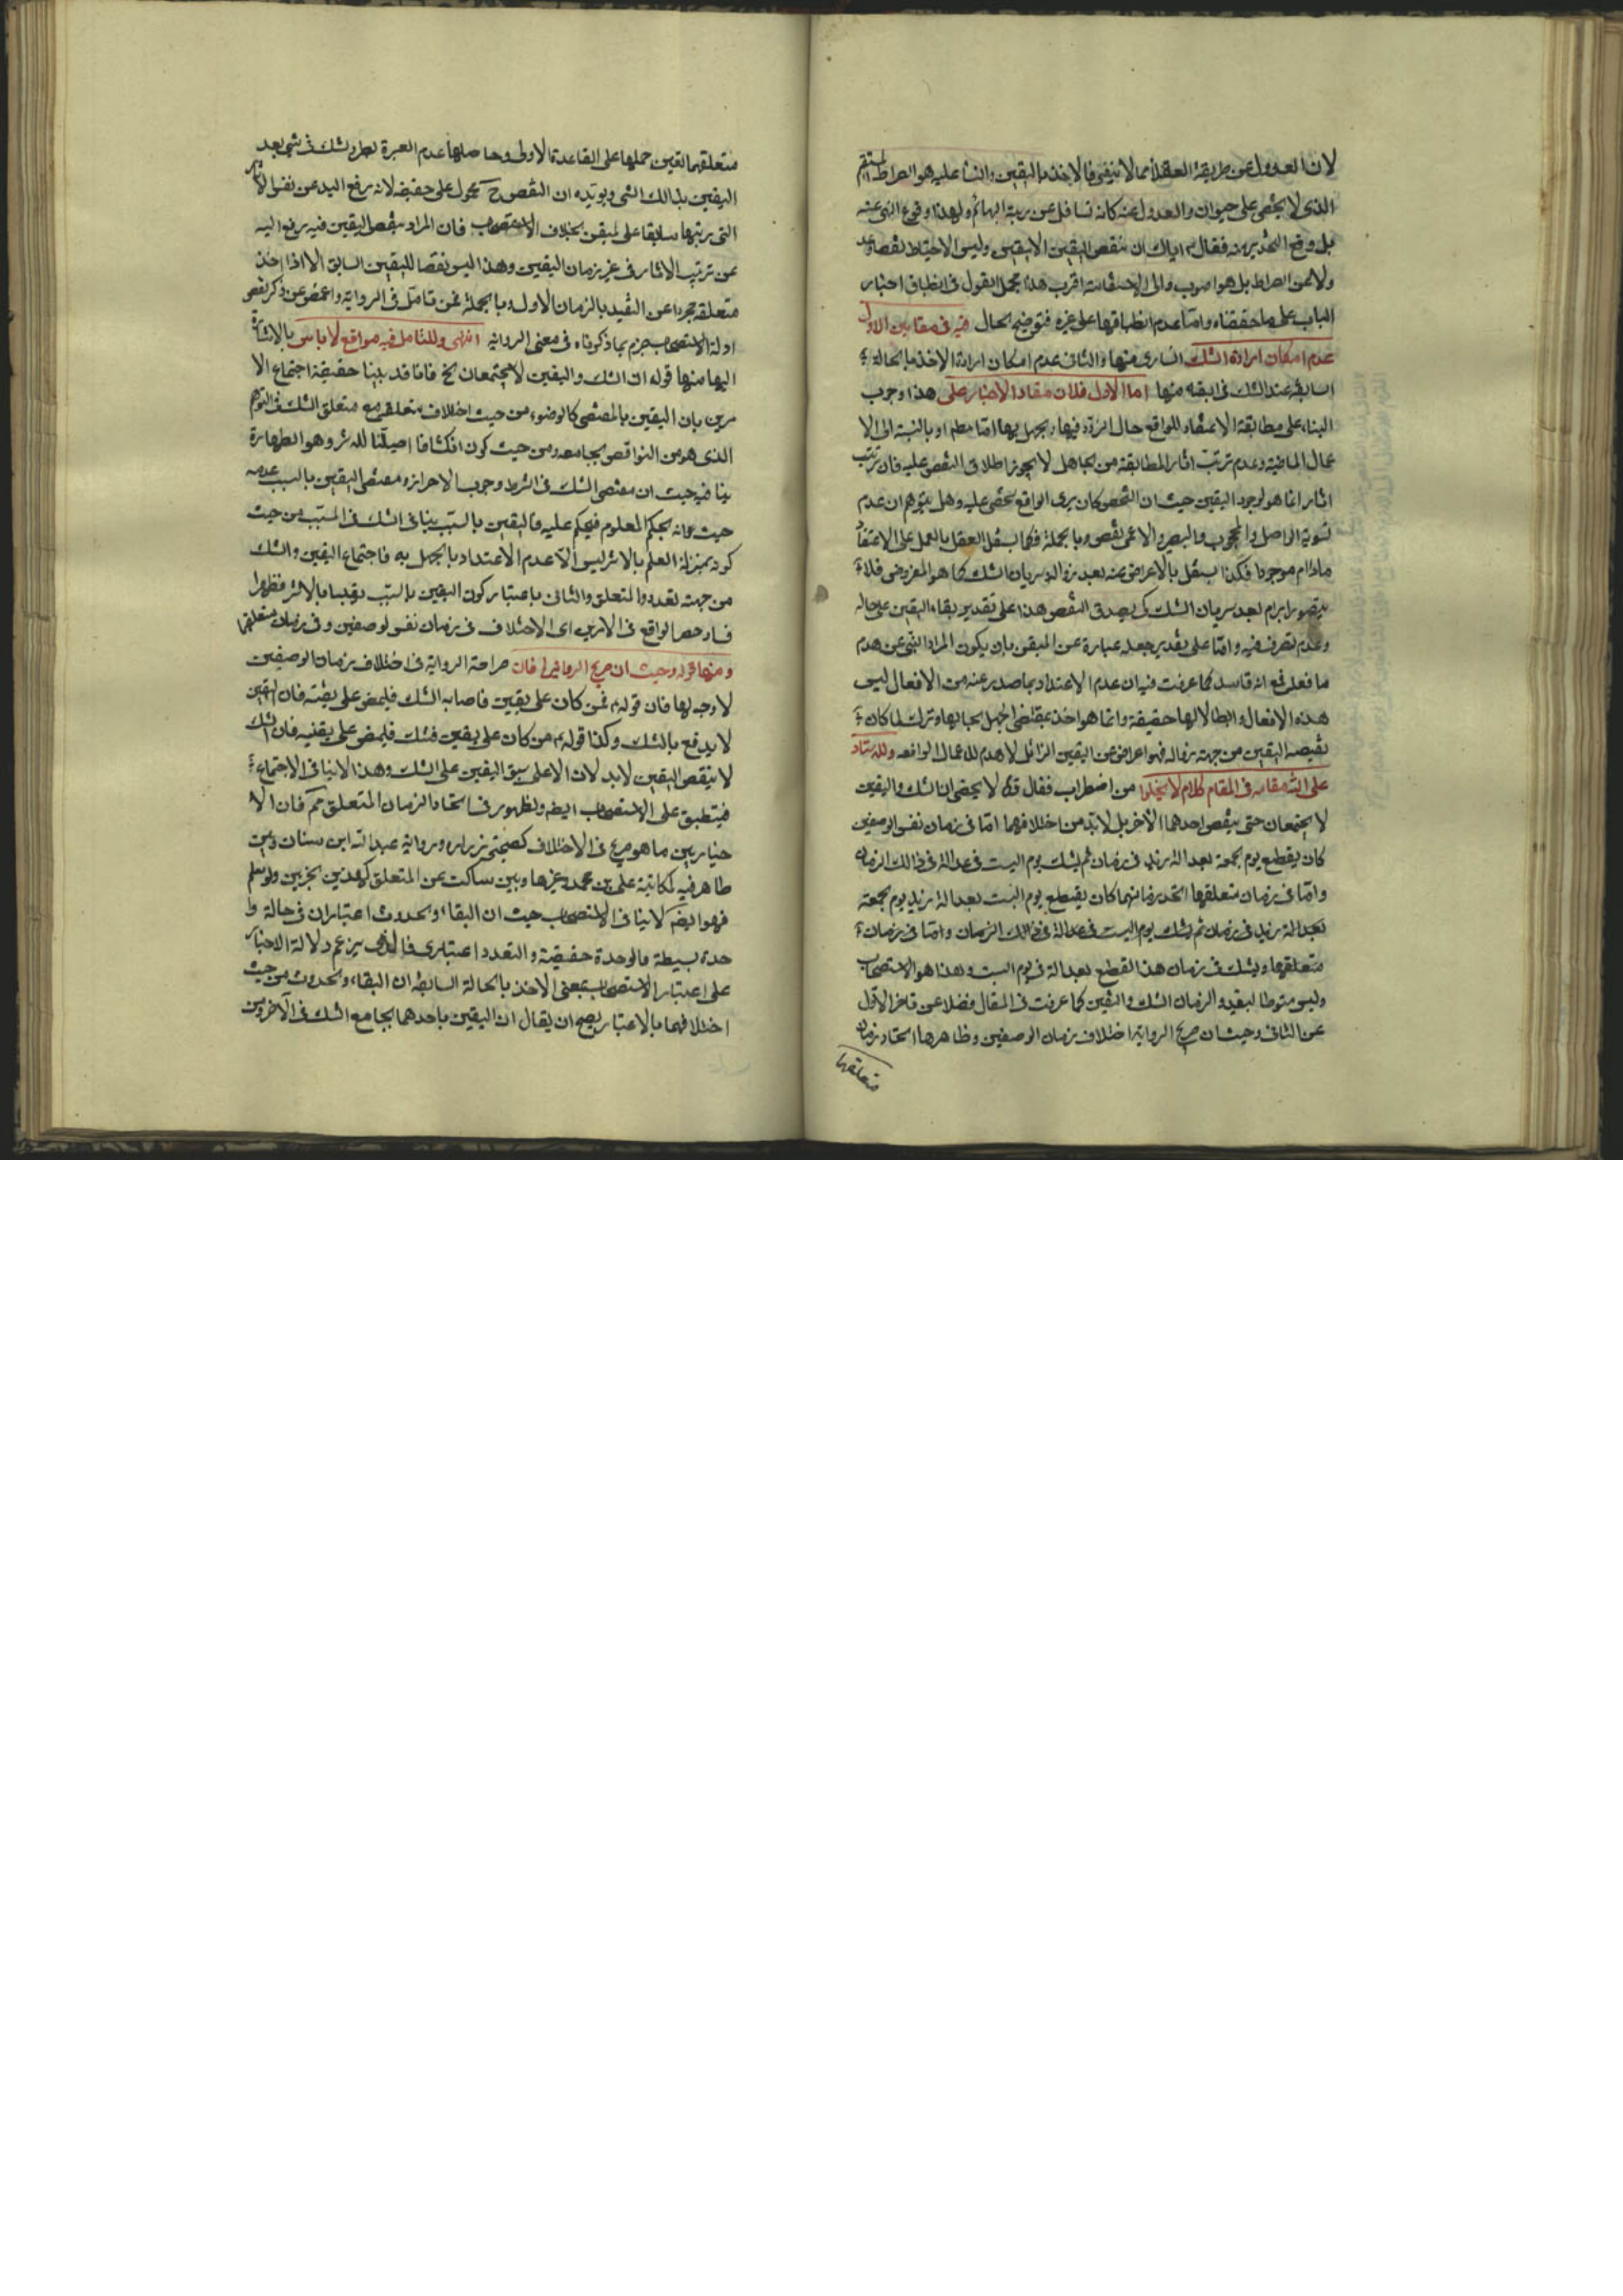 لان العدول عن طريقة العقلأ مما لا ينبغى فالاخذ باليقين والبنا عليه هو الصراط المستقيم
الذى لا يخفى على حيوان والعدول عنه كانه تسافل عن رتبة البهائم ولهذا وقع النهى عنه
بل وقع التحذير منه فقال ع اياك ان تنقض اليقين الا بيقين وليس الاحتياط نقضا وعد
ولا عن الصراط بل هو اصوب والى الاستقامة اقرب هذا مجمل القول فى انطباق اخبار
الباب على ما حققناه وامتا عدم انطباقها على غيره فتوضيح الحال فيه فى مقامين الاول
عدم امكان ارادة الشك السارى منها والثانى عدم امكان ارادة الاخذ بالحالة
السابقة عند الشك فى ابقه منها اما الاول فلان مفاد الاخبار على هذا وجوب
البناء على مطابقة الاعتقاد للواقع حال التردد فيها وبجهل بها امتا مطم او بالنسبة الى الا
عمال الماضية وعدم ترتب اثار المطابقة من الجاهل لا يجوز اطلاق النقض عليه فان ترتب
اثار انما هو لوجود اليقين حيث ان الشخص كان يرى الواقع شخص عليه وهل يتوهم ان عدم
تسوية الواصل والمحجوب والبصير والاعمى نقض وبا بجملة فكما يستقل العقل بالعمل على الاعتقاد
مادام موجودا فكذا يستقل بالاعراض عنه بعد زواله وسريان الشك كما هو المفروض فلا
يتصور ابرام بعد سريان الشك كى يصدق النقض هذا على تقدير بقاء اليقين على حاله
وعدم تصرف فيه وامتا على تقدير جعله عبارة عن المتيقن بان يكون المراد النهى عن هدم
ما فعل فمع انه فاسد كما عرفت فيه ان عدم الاعتداد بما صدر عنه من الافعال ليس
هذه الافعال وابطالا لها حقيقة وانما هو اخذ بمقتضى الجهل بحالها وترك لما كان
نقيضه اليقين من جهة زواله فهو اعراض عن اليقين الزائل لا هدم للاعمال الواقعه وللاستاد
على الله مقامه فى المقام كلام لا يخلوا من اضطراب فقال قده لا يخفى ان الشك واليقين
لا يجتمعان حتى ينقض احدهما الاخر بل لا بد من اختلافهما امتا فى زمان نفس الوصفين
كان يقطع يوم بجمعة بعدالة زيد فى زمان ثم يشك يوم السبت فى عدالة فى ذالك الزمان
وامتا فى زمان متعلقهما اتحد زمانهما كان يقطع يوم السبت بعدالة زيد يوم بجمعة
بعدالة زيد فى زمان ثم يشك يوم السبت فى عدالة فى ذالك الزمان وامتا فى زمان
متعلقهما ويشك فى زمان هذا القطع بعدالة فى يوم السبت وهذا هو الاستصحاب
وليس منوطا بتعدد الزمان الشك واليقين كما عرفت فى المقال فضلا عن تاخر الاول
عن الثانى وحيث ان صريح الرواية اختلاف زمان الوصفين وظاهرها اتحاد زمان
متعلقهما
متعلقهما تعين حملها على القاعدة الاولى وحاصلها عدم العبرة بطرو شك فى شئ بعد
اليقين بذالك الشئ ويؤيده ان النقض ح محمول على حقيقته لانه رفع اليد عن نفس الاثار
التى رتبها سابقا على لمتيقن بخلاف الاستصحاب فان المراد بنقض اليقين فيه رفع اليد
عن ترتيب الاثار فى غير زمان اليقين وهذا ليس نقضا لليقين السابق الا اذا اخذ
متعلقه مجردا عن التقييد بالزمان الاول وبا بجملة فمن تامل فى الرواية واغمض عن ذكر بعض
ادلة الاستصحاب جزم بما ذكرناه فى معنى الرواية انتهى وللتامل فيه مواقع لا باس بالاشارة
اليها منها قوله ان الشك واليقين لا يجتمعان الخ فانا قد بينا حقيقة اجتماع الا
مرين بان اليقين بالمقتضى كالوضوء من حيث اختلاف متعلقه مع متعلق الشك فى النوم
الذى هو من النواقض يجامعه ومن حيث كون انكشافا اصيلّنا للاثر وهو الطهارة
ينافيه حيث ان مقتضى الشك فى الشرط وجوب الاحراز ومقتضى اليقين بالسبب عدمه
حيث انه بحكم المعلوم فيحكم عليه فاليقين بالسبب ينافى الشك فى المسبب من حيث
كونه بمنزلة العلم بالاثر ليس الا عدم الاعتداد بالجهل به فاجتماع اليقين والشك
من جهة تعدد المتعلق والثانى باعتبار كون اليقين بالسبب يقينا بالاثر فظهر
فساد حصر الواقع فى الامرين اى الاختلاف فى زمان نفس لوصفين وفى زمان متعلقهما
ومنها قوله وحيث ان صريح الرواية الخ فان صراحة الرواية فى اختلاف زمان الوصفين
لا وجه لها فان قوله ع فمن كان على يقين فاصابه الشك فليمض على يقينه فان اليقين
لا يدفع بالشك وكذا قوله ع من كان على يقين فشك فليمض على يقينه فان الشك
لا ينقض اليقين لا يدلان الا على سبق اليقين على الشك وهذا لا ينافى الاجتماع
فينطبق على الاستصحاب ايضه وظهور فى اتحاد الزمان المتعلق مم فان الا
خبار بين ما هو صريح فى الاختلاف كصحيحتى زراره ورواية عبدالله ابن سنان وبين
ظاهر فيه لمكاتبة على بن محمد وغيرها وبين ساكت عن المتعلق كهذين الخبرين ولو سلم
فهو ايضه لا ينافى الاستصحاب حيث ان البقاء وبحدوث اعتباران فى حالة وا
حدة بسيطة فالوحدة حقيقية والتعدد اعتبارى فالذى يزعم دلالة الاخبار
على اعتبار الاستصحاب بمعنى الاخذ بالحالة السابقة ان البقاء وبحدوث من حيث
اختلافهما بالاعتبار يصح ان يقال ان اليقين باحدهما يجامع الشك فى الآخر ومن